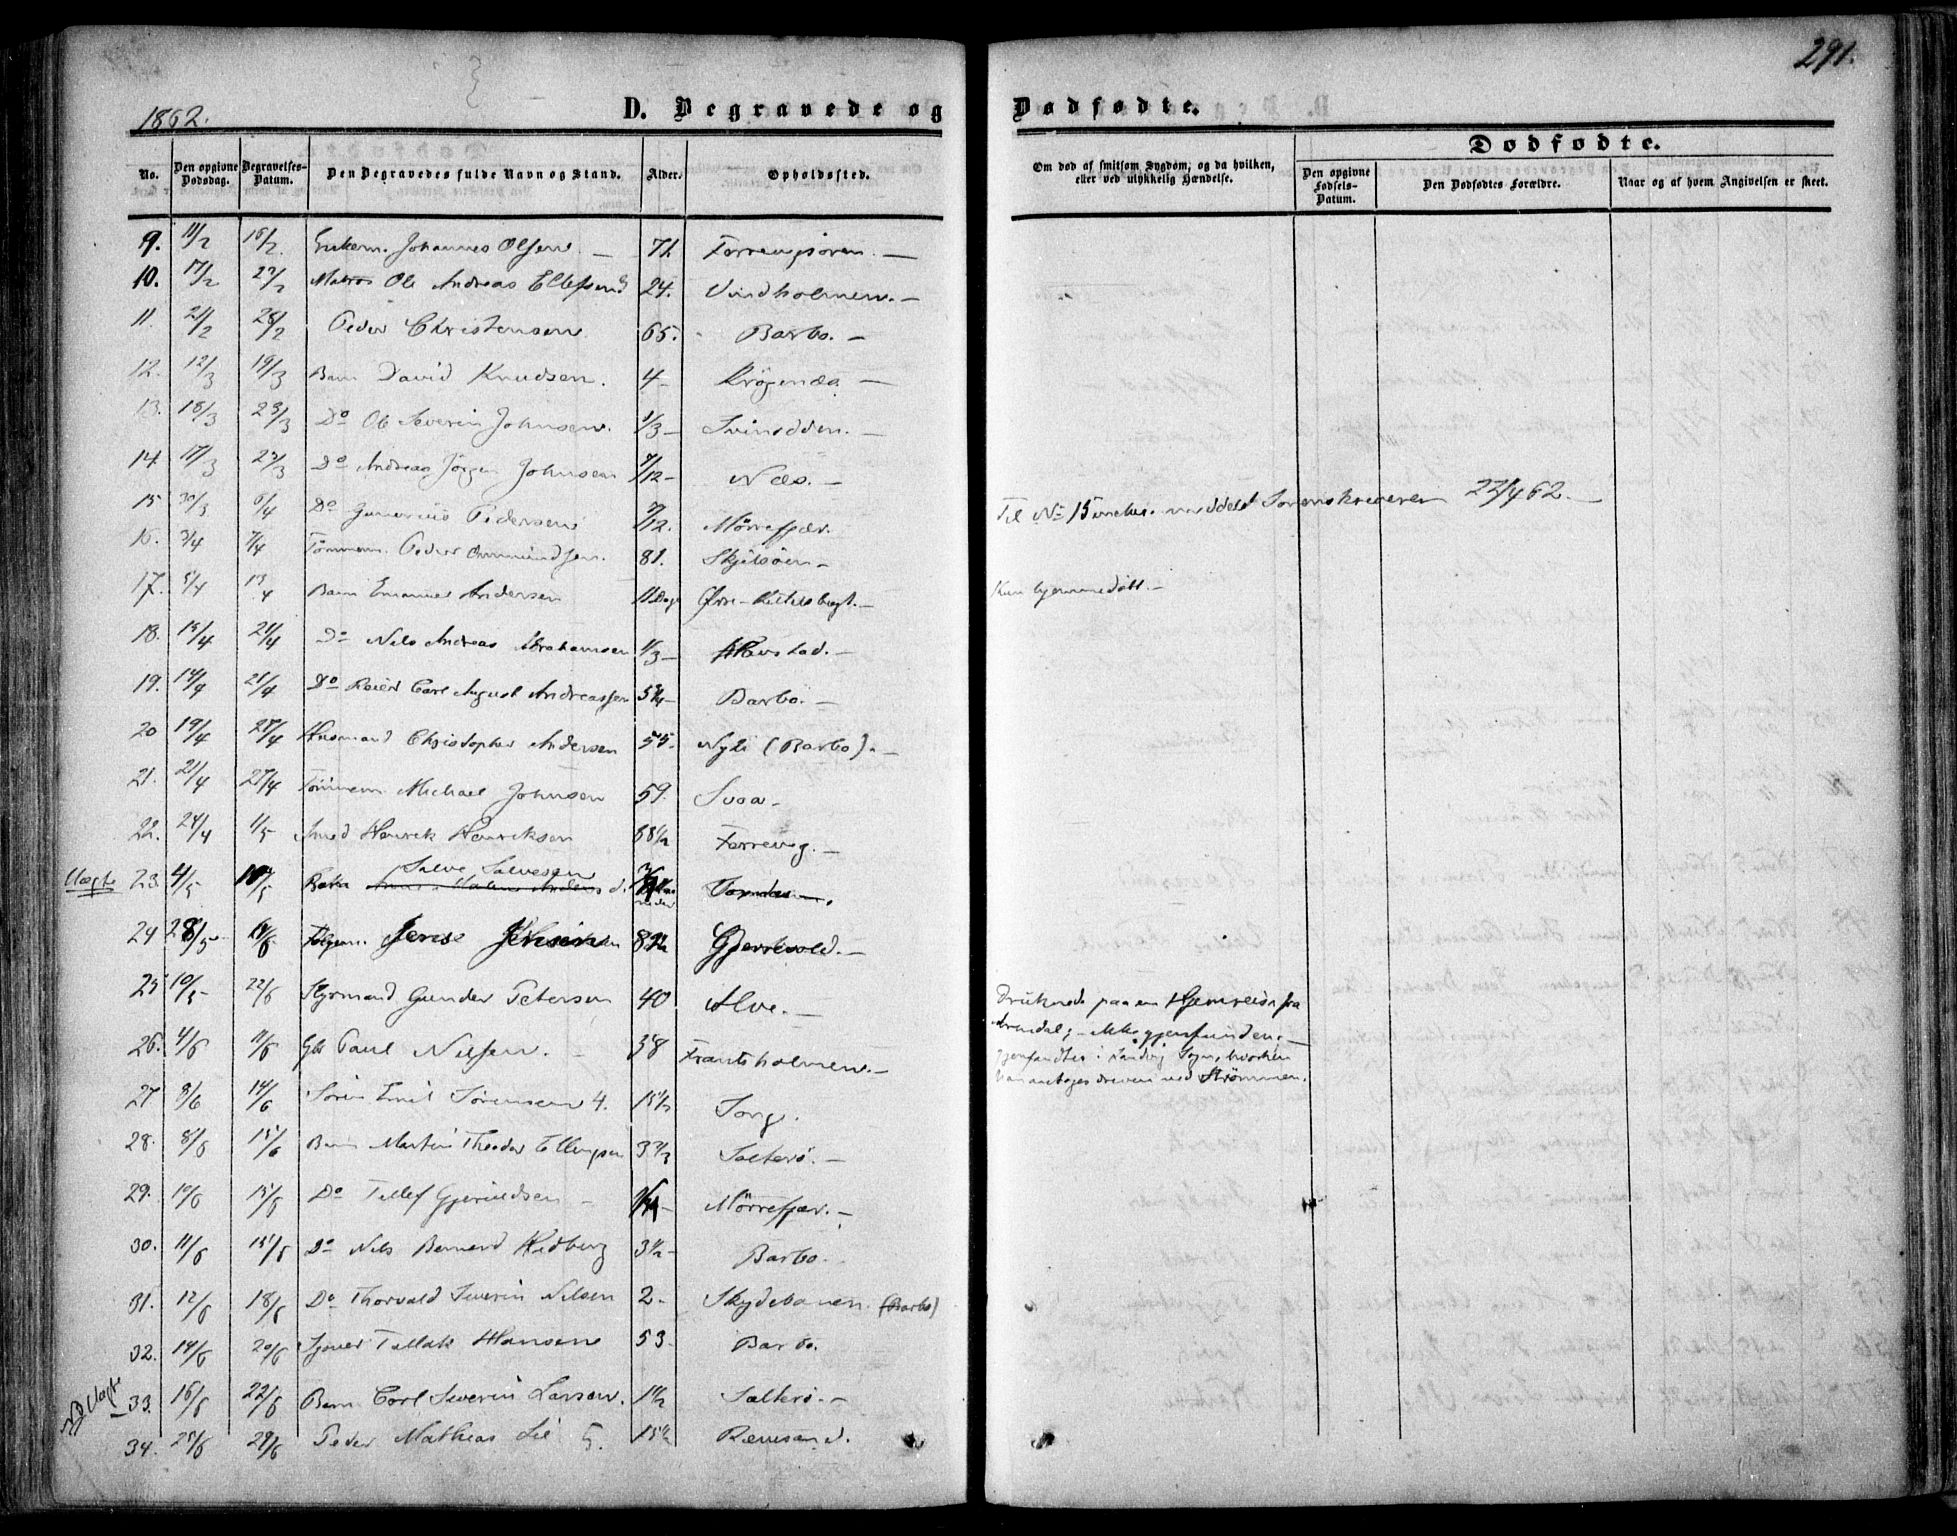 291.
1862.
D. Begravede og Dødfødte.
No.
Den opgivne Dødsdag.
Begravelses-Datum.
Den Begravedes fulde Navn og Stand.
Alder.
Opholdssted.
Om død af smitsom Sygdom, og da hvilken, eller ved ulykkelig Hændelse.
Dødfødte.
Den opgivne Fødsels-Datum.
Den Dødfødtes Forældre.
Naar og af hvem Angivelsen er skeet.
9. 11/2 16/2. Enkem. Johannes Olsen. 71.
10. 17/2 Matros Ole Andreas Ellefsen 24. Vindholmen.
11. 21/2 Peder Christensen 65. Barbo.
12. 12/3 19/3 Barn David Knudsen. 4 Krögenæs
13. 18/3 23/3 Do Ole Severin Johnsen. 1/3 Svinodden.
14. 17/3 23/3 Do Andreas Jörgen Johnsen 7/12 Næs.
15 30/3 6/4 Do Gunerius Pedersen 7/12. Mörrefjær.
Til No 15 incl. meddelt Sorenskriveren 22/4 62.
16. 3/4 7/4 Tömmerm. Peder Ommundsen. 81. Skjelsöen
17. 5/4 13/4 Barn Emanuel Andersen 11 Dage Østre-Kittelsbugt.
Kun hjemmedöbt.
18. 15/4 21/4 Do Nils Andreas Abrahamsen 1/3
19. 14/4 21/4 Do Reier Carl August Andreassen 5 3/4 Barbo.
20 19/4 27/4 Husmand Christopher Andersen 55. Nyli (Barbo).
21. 21/4 27/4 Tömmerm. Michael Johnsen 59. Svoa
22. 24/4 1/5 Smed Henrik Henriksen 1/2
23. 4/5 Salve Salvesen
24 28/5 Gjerrevold.
25 10/5 22/6 Styrmand Gunder Petersen 40 Alve.
Druknede paa en Hjemreise fra
Arendal; ikke gjenfunden.
gjenfandtes i Landvig Sogn, hvorhen
han antages dreven med Strömmen.
26. 4/6 11/6 Paul Nilsen. 38 Frantsholmen.
27 8/6 14/6 Sören Emil Sörensen 4. 15 1/2 Torp.
28. 8/6 15/6 Barn Martin Theodor Ellingsen 3 2/3 Salterö.
29. 10/6 15/6 Do Tellef Gjeruldsen Mörrefjær.
30. 11/6 15/6 Do Nils Bernerd Hedberg 3 1/2 Barbo.
31. 12/6 18/6 Do Thorvald Severin Nilsen 2 Skydebanen (Barbo)
32. 14/6 20/6 Tellak Hansen 53. Barbo.
33. 16/6 22/6 Barn Carl Severin Larsen. 1 1/2 Salterö.
34. 25/6 29/6 Peder Mathias Lie 5. 15 1/2 Rævesand.